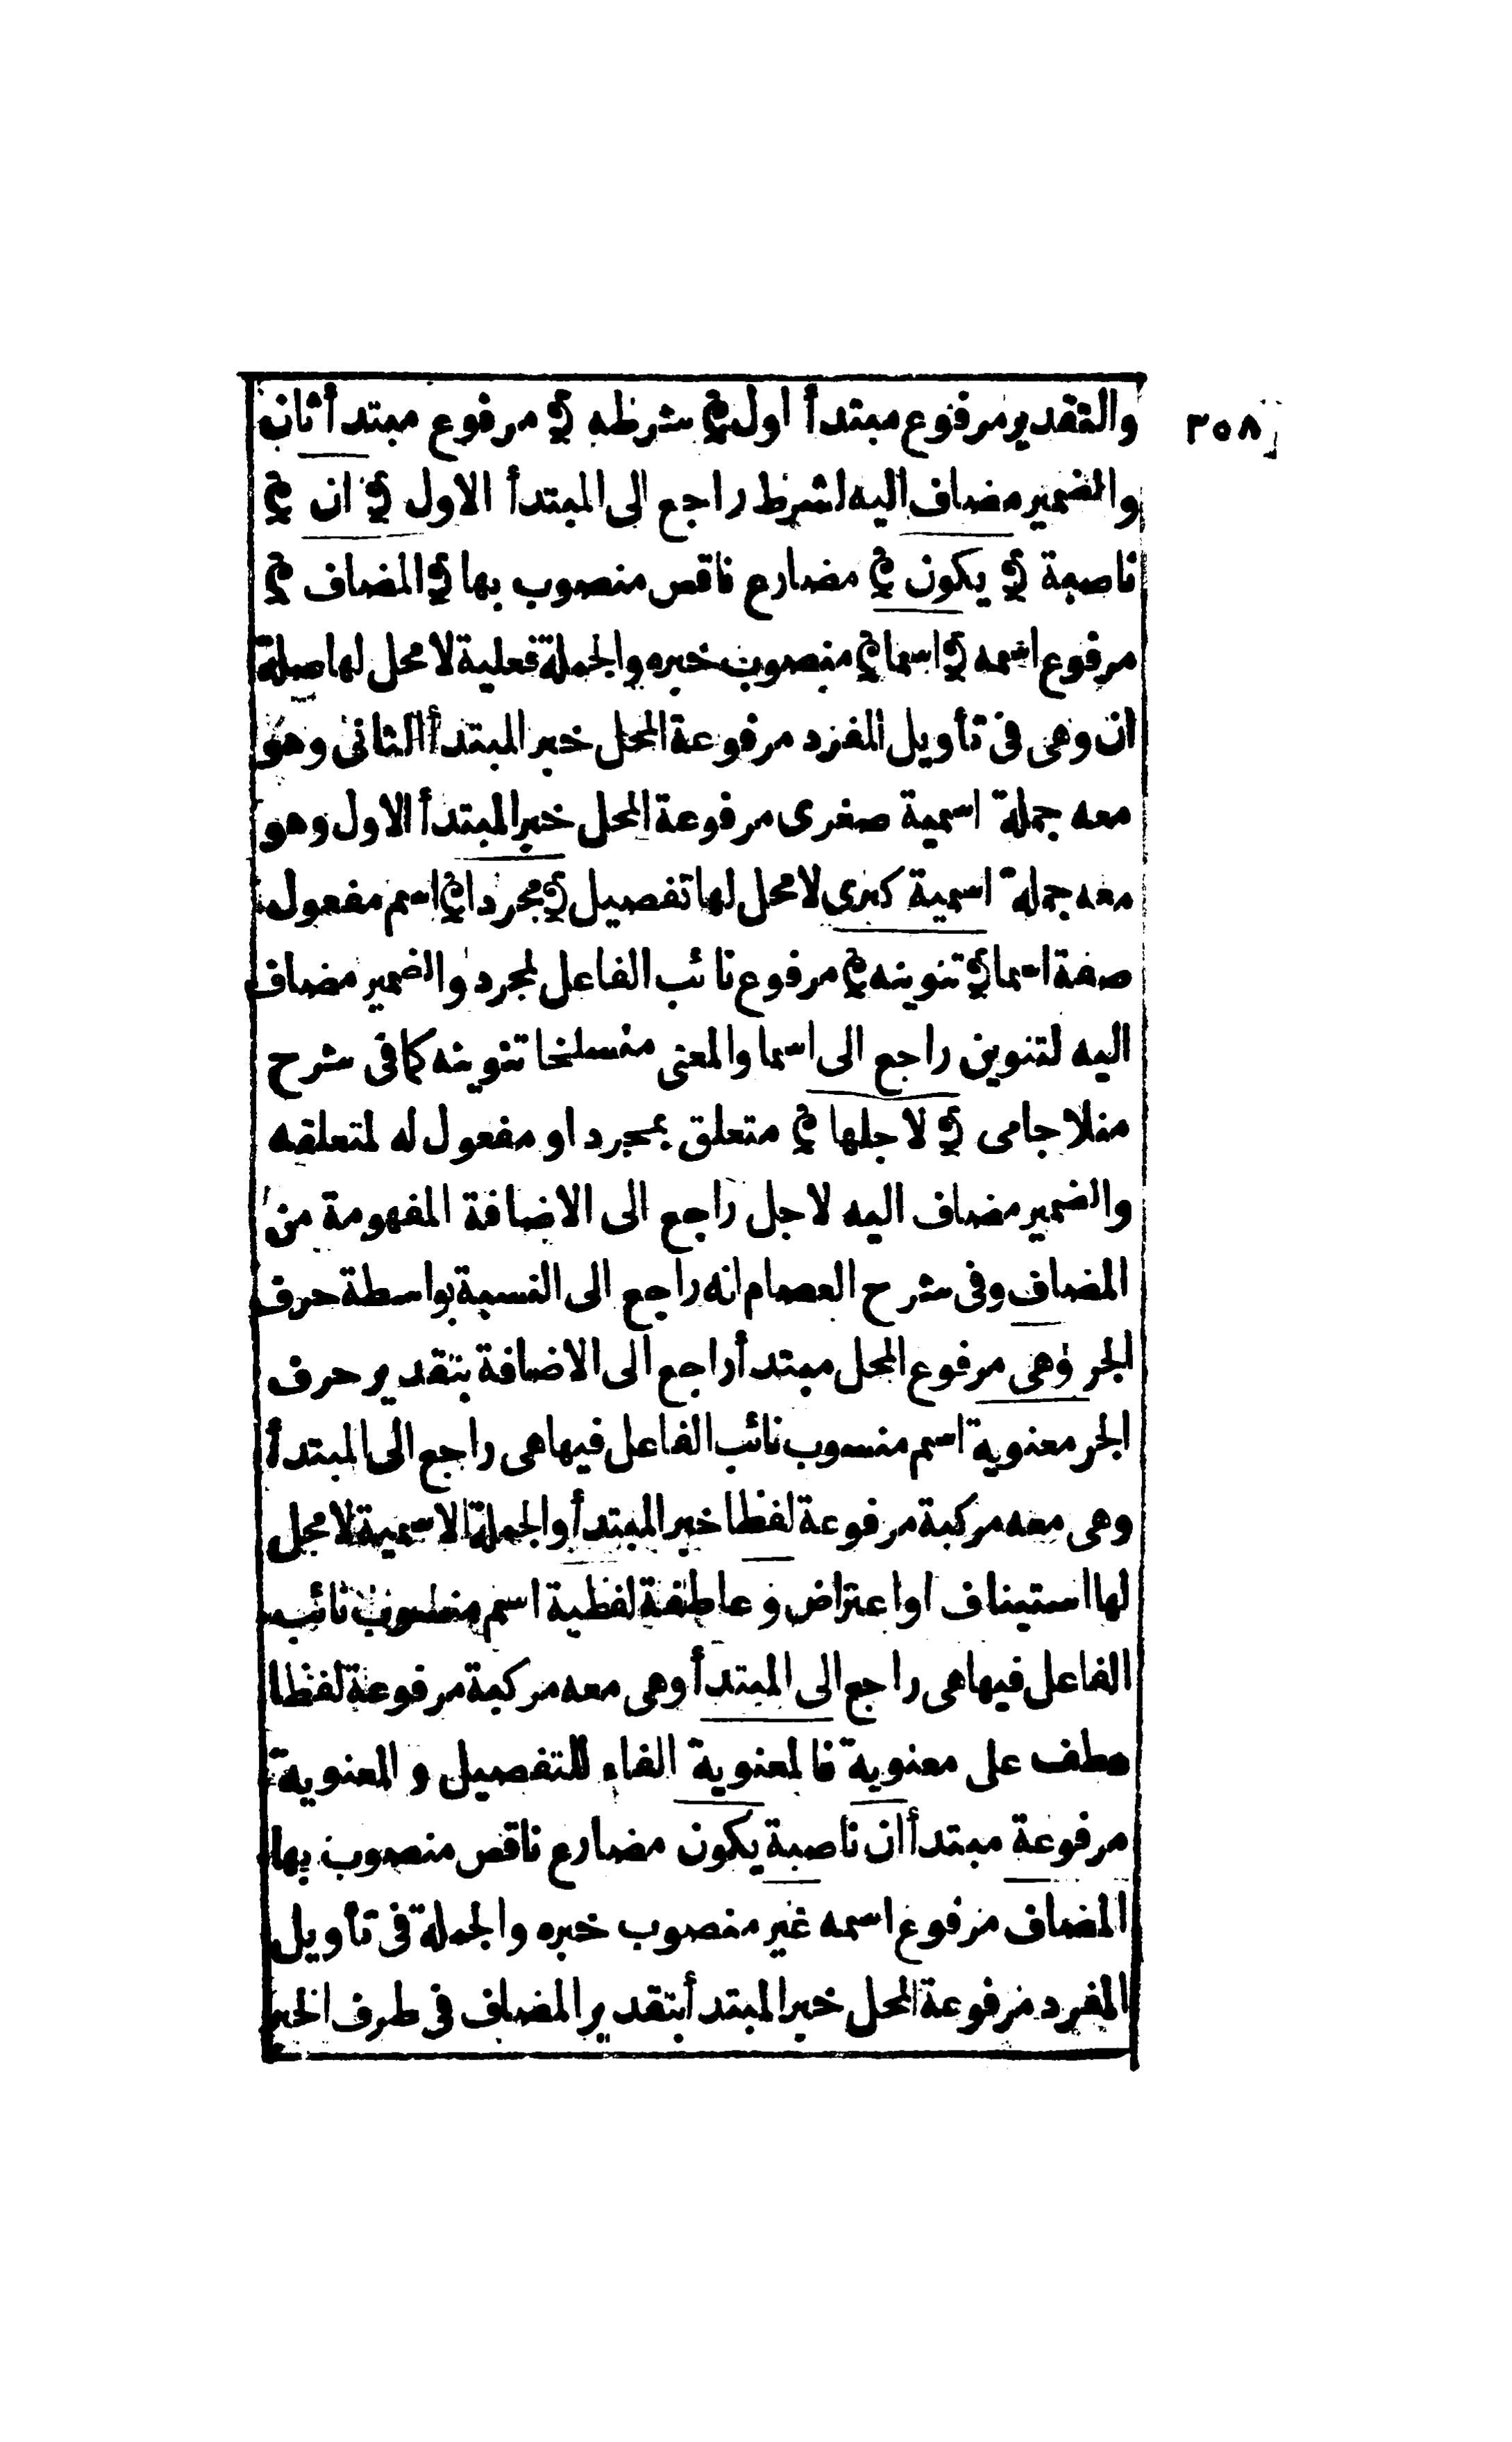 ٣٥٨
والتقدير مرفوع مبتدأ اول ﴿ شرطه ﴾ مرفوع مبتدأ ثان
والضمير مضاف اليه لشرط راجع الى المبتدأ الاول ﴿ ان ﴾
ناصبة ﴿ يكون ﴾ مضارع ناقص منصوب بها ﴿ المضاف ﴾
مرفوع اسمه ﴿ اسما ﴾ منصوب خبره والجملة فعلية لا محل لها صلة
ان وهى فى تأويل المفرد مرفوعة المحل خبر المبتدأ الثانى وهو
معه جملة اسمية صغرى مرفوعة المحل خبر المبتدأ الاول وهو
معه جملة اسمية كبرى لا محل لها تفصيل ﴿ مجردا ﴾ اسم مفعول
صفة اسما ﴿ تنوينه ﴾ مرفوع نائب الفاعل لمجرد والضمير مضاف
اليه لتنوين راجع الى اسما والمعنى منسلخا تنوينه كما فى شرح
منلا جامى ﴿ لاجلها ﴾ متعلق بمجرد او مفعول له لمتعلقه
والضمير مضاف اليه لاجل راجع الى الاضافة المفهومة من
المضاف وفى شرح العصام انه راجع الى النسبة بواسطة حرف
الجر وهى مرفوع المحل مبتدأ راجع الى الاضافة بتقدير حرف
الجر معنوية اسم منسوب نائب الفاعل فيها هى راجع الى المبتدأ
وهى معه مركبة مرفوعة لفظا خبر المبتدأ والجملة الاسمية لا محل
لها استيناف او اعتراض و عاطفة لفظية اسم منسوب نائب
الفاعل فيها هى راجع الى المبتدأ وهى معه مركبة مرفوعة لفظا
عطف على معنوية فالمعنوية الفاء للتفصيل و المعنوية
مرفوعة مبتدأ ان ناصبة يكون مضارع ناقص منصوب بها
المضاف مرفوع اسمه غير منصوب خبره والجملة فى تأويل
المفرد مرفوعة المحل خبر المبتدأ بتقدير المضاف فى طرف الخبر